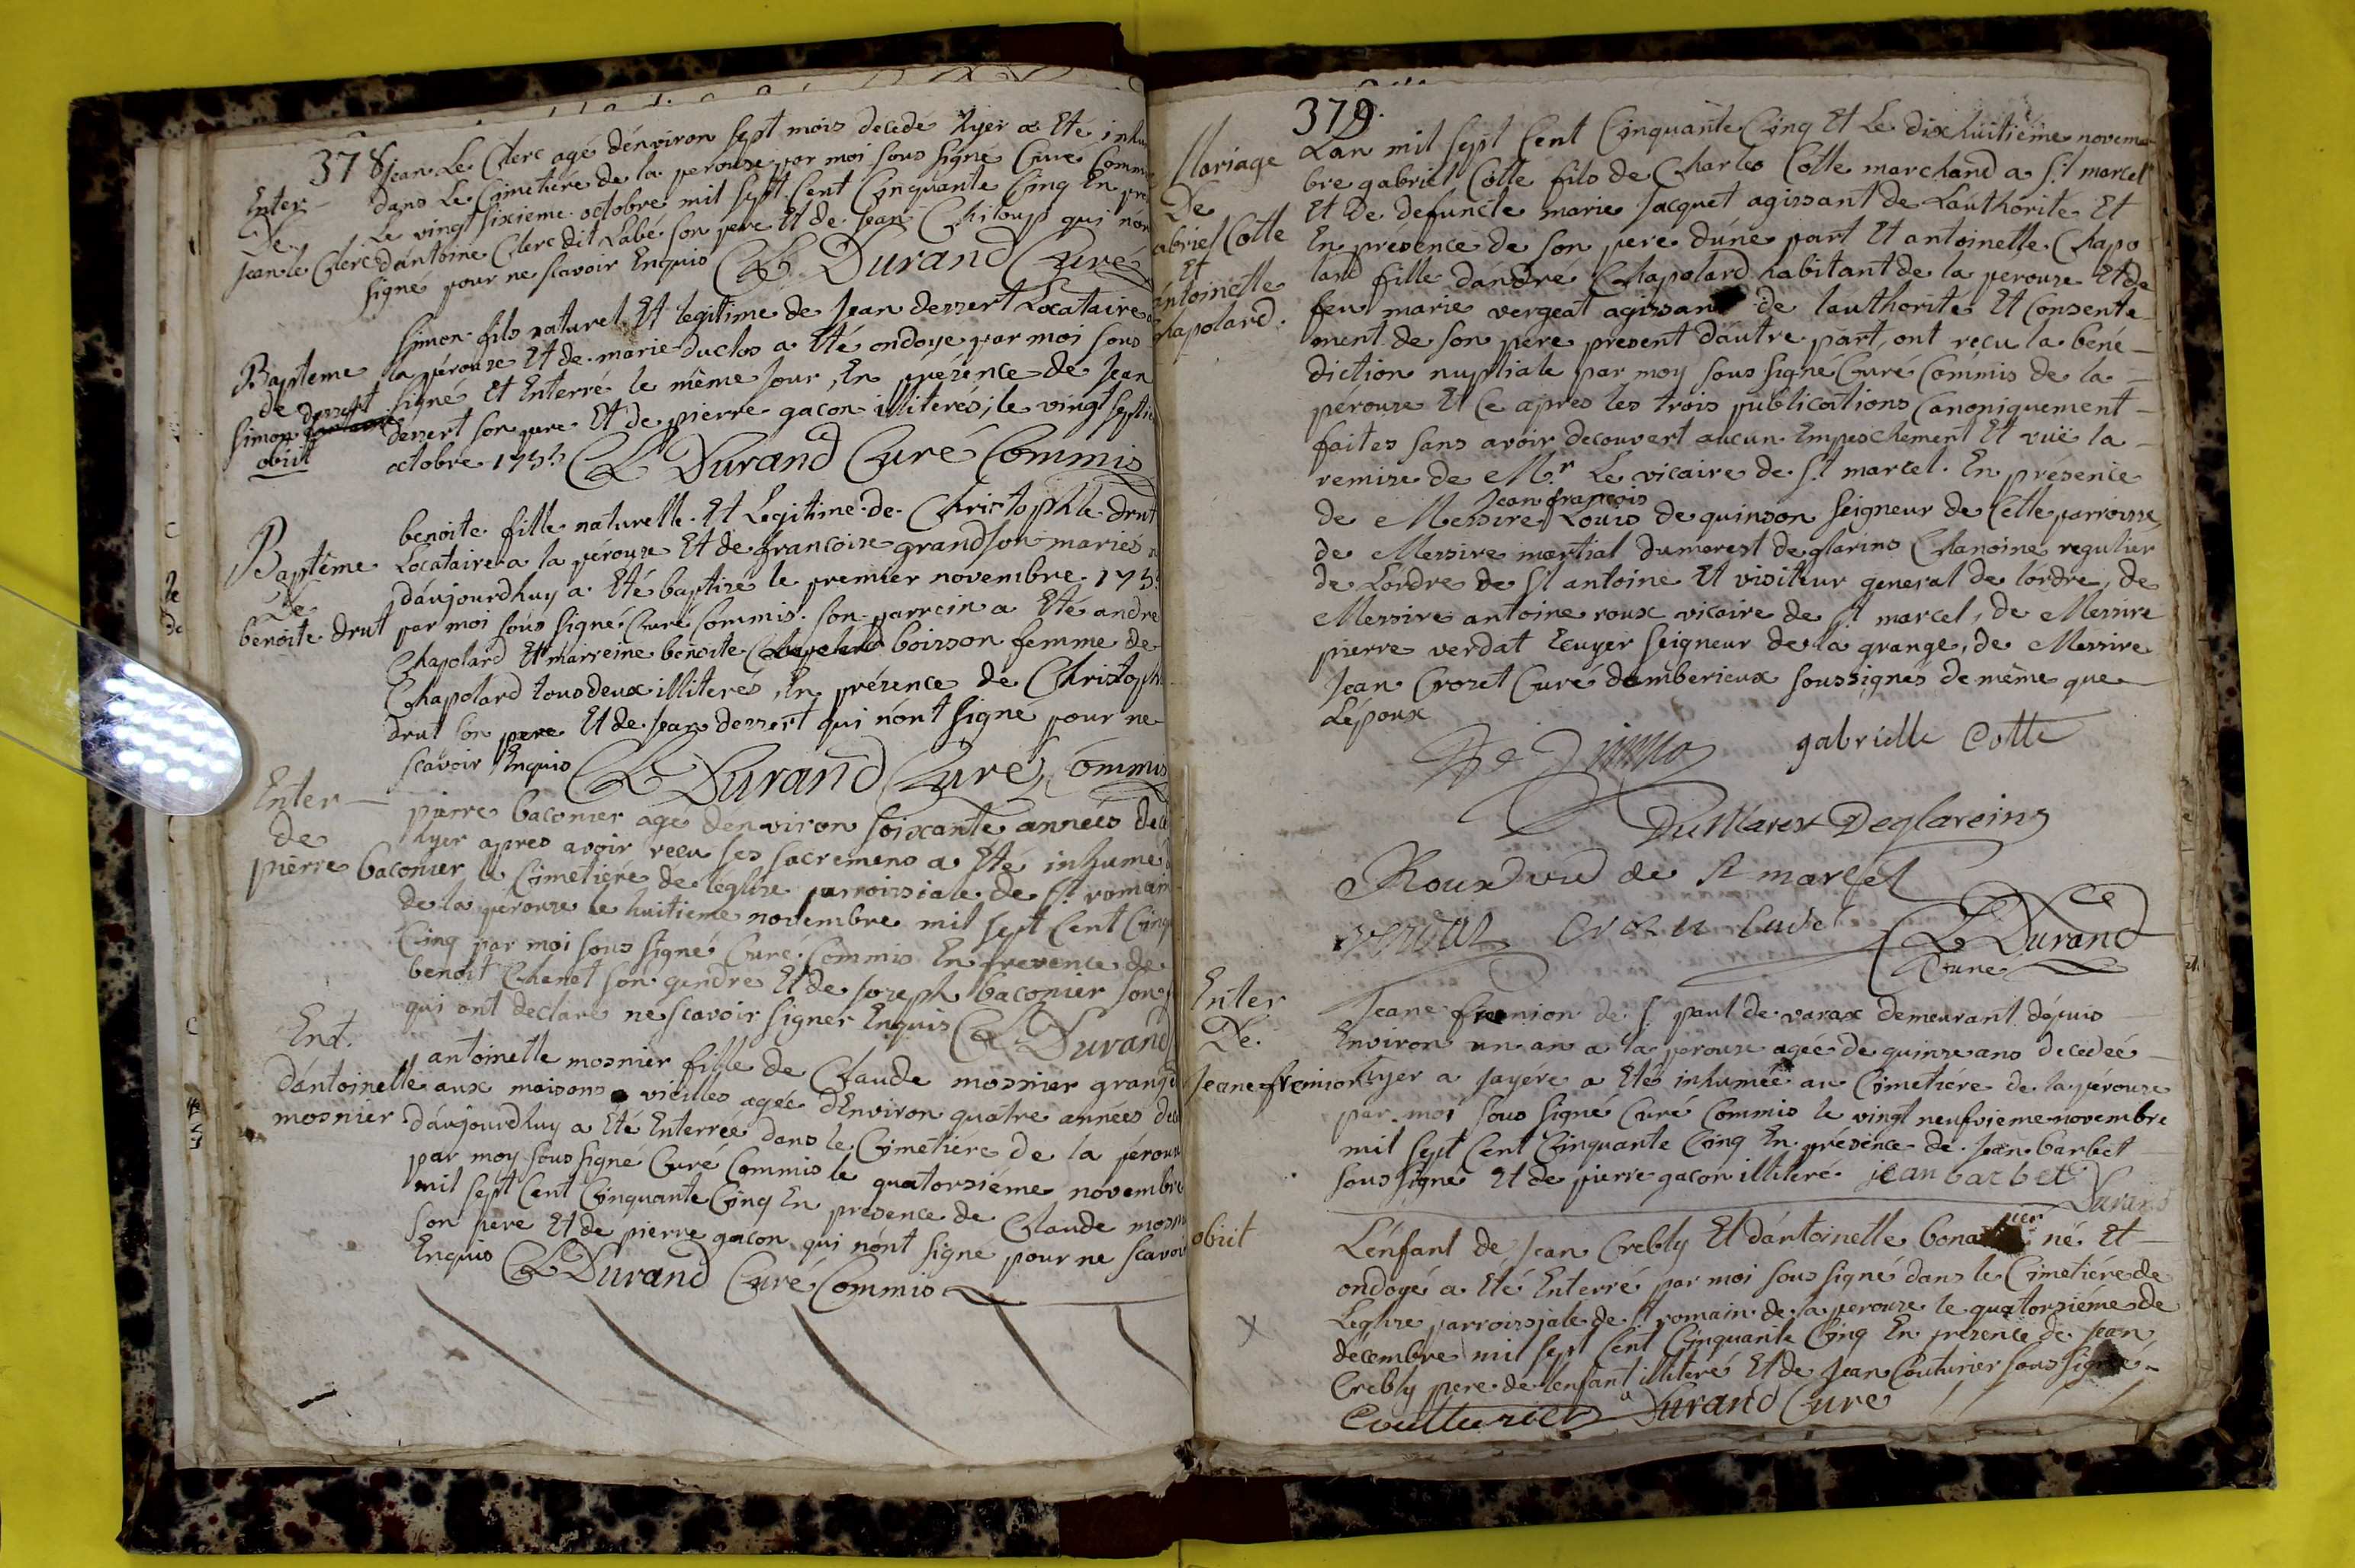 378
Enter
de
jean le Clerc
jean Le Clerc agé d'environ sept mois decedé hyer a Eté inhu
dans Le Cimetiére de la perouse par moi sous signé Curé Comm
Le vingt sixieme octobre mil sept Cent Cinquante Cinq En pre
d'antoine Clerc dit Labé son pere Et de jean Chiloup qui n'on
signé pour ne scavoir Enquis Durand Curé
Bapteme
de
simon dessert
obiit
simon fils naturel Et legitime de jean dessert Locataire
la pérouse Et de marie duclos a Eté ondoye par moi sous
signé Et Enterré le même jour, En présence de jean
dessert son pere Et de pierre gacon illiterés; le vingt septie
octobre 1755 Durand Curé Commis
Baptême
De
benoite drut
benoite fille naturelle Et Legitime de Christophle drut
Locataire a la pérouse Et de francoise grandjon mariés
d'aujourdhuy a Eté baptise le premier novembre 175
par moi sous signé Curé Commis. son parrein a Eté andre
Chapolard Et marreine benoite boisson femme de
Chapolard tous deux illiterés, En présence de Christoph
drut son pere Et de jean dessert qui n'ont signé pour ne
scavoir Enquis Durand Curé Commis
Enter
de
pierre baconier
pierre baconier agé denviron soixante années dece
hyer apres avoir recu ses sacremens a Eté inhumé
le Cimetiére de léglise parroissiale de St romain
de la pérouse le huitieme novembre mil sept Cent Cinq
Cinq par moi sous signé Curé Commis En presence de
benoit Chanet son gendre Et de joseph baconier son
qui ont declaré ne scavoir signer Enquis Durand
Ent.
d'antoinette
mosnier
antoinette mosnier fille de Claude mosnier grang
aux maisons vieilles agée dEnviron quatre années dec
d'aujourdhuy a Eté Enterrée dans le Cimetiére de la pérous
par moy sous signé Curé Commis le quatorsiéme novembre
mil sept Cent Cinquante Cinq En presence de Claude mosn
son pere Et de pierre gacon qui n'ont signé pour ne scavoir
Enquis Durand Curé Commis
379.
Mariage
De
abriel Colle
Et
antoinette
hapolard.
Lan mil sept Cent Cinquante Cinq Et Le dixhuitiéme novem
bre gabriel Colle fils de Charles Colle marchand a St marcel
Et De defuncte marie jacquet agissant de Lauthorité Et
En présence de son pere d'une part Et antoinette Chapo
lard fille d'andré Chapolard habitant de la perouse Et de
feu marie vergeat agissant de lauthorité Et Consente
ment de son pere present d'autre part, ont recu la béné
diction nuptiale par moy sous signé Curé Commis de la
pérouse Et Ce apres les trois publications Canoniquement
faites sans avoir decouvert aucun Empeschement Et vuë la
remise de Mr Le vicaire de St marcel. En présence
de Messire jean françois Louis de quinson seigneur de Cette parroisse,
de Messire martial dumarest de glarins Chanoine regulier
de Lordre de St antoine Et visiteur general de l'ordre, de
Messire antoine roux vicaire de St marcel, de Messire
pierre verdat Ecuyer seigneur de la grange, de Messire
jean Crozet Curé damberieux soussignés de même que
Lépoux
gabrielle Colle
DuMarest Deglareins
Roux vic de St marcel
Durand
Curé
Enter
De
jeane frenion
jeane frenion de St paul de varax demeurant dépuis
Environ un an a la perouse agée de quinse ans decedeé
hyer a jayere a Eté inhumée au Cimetiére de la pérouse
par moi sous signé Curé Commis le vingt neufvieme novembre
mil sept Cent Cinquante Cinq En présence de jean barbet
sous signé Et de pierre gacon illiteré jean barbet
Durand
obiit
L'énfant de jean Crebly Et d'antoinette né Et
ondoyé a Eté Enterré par moi sous signé dans le Cimetiére de
Leglise parroissiale de St romain de la perouse le quatorsiéme de
decembre mil sept Cent Cinquante Cinq En présence de jean
Crebly pere de l'enfant illiteré Et de jean Couturier sous signé
Coutturier Durand Cure